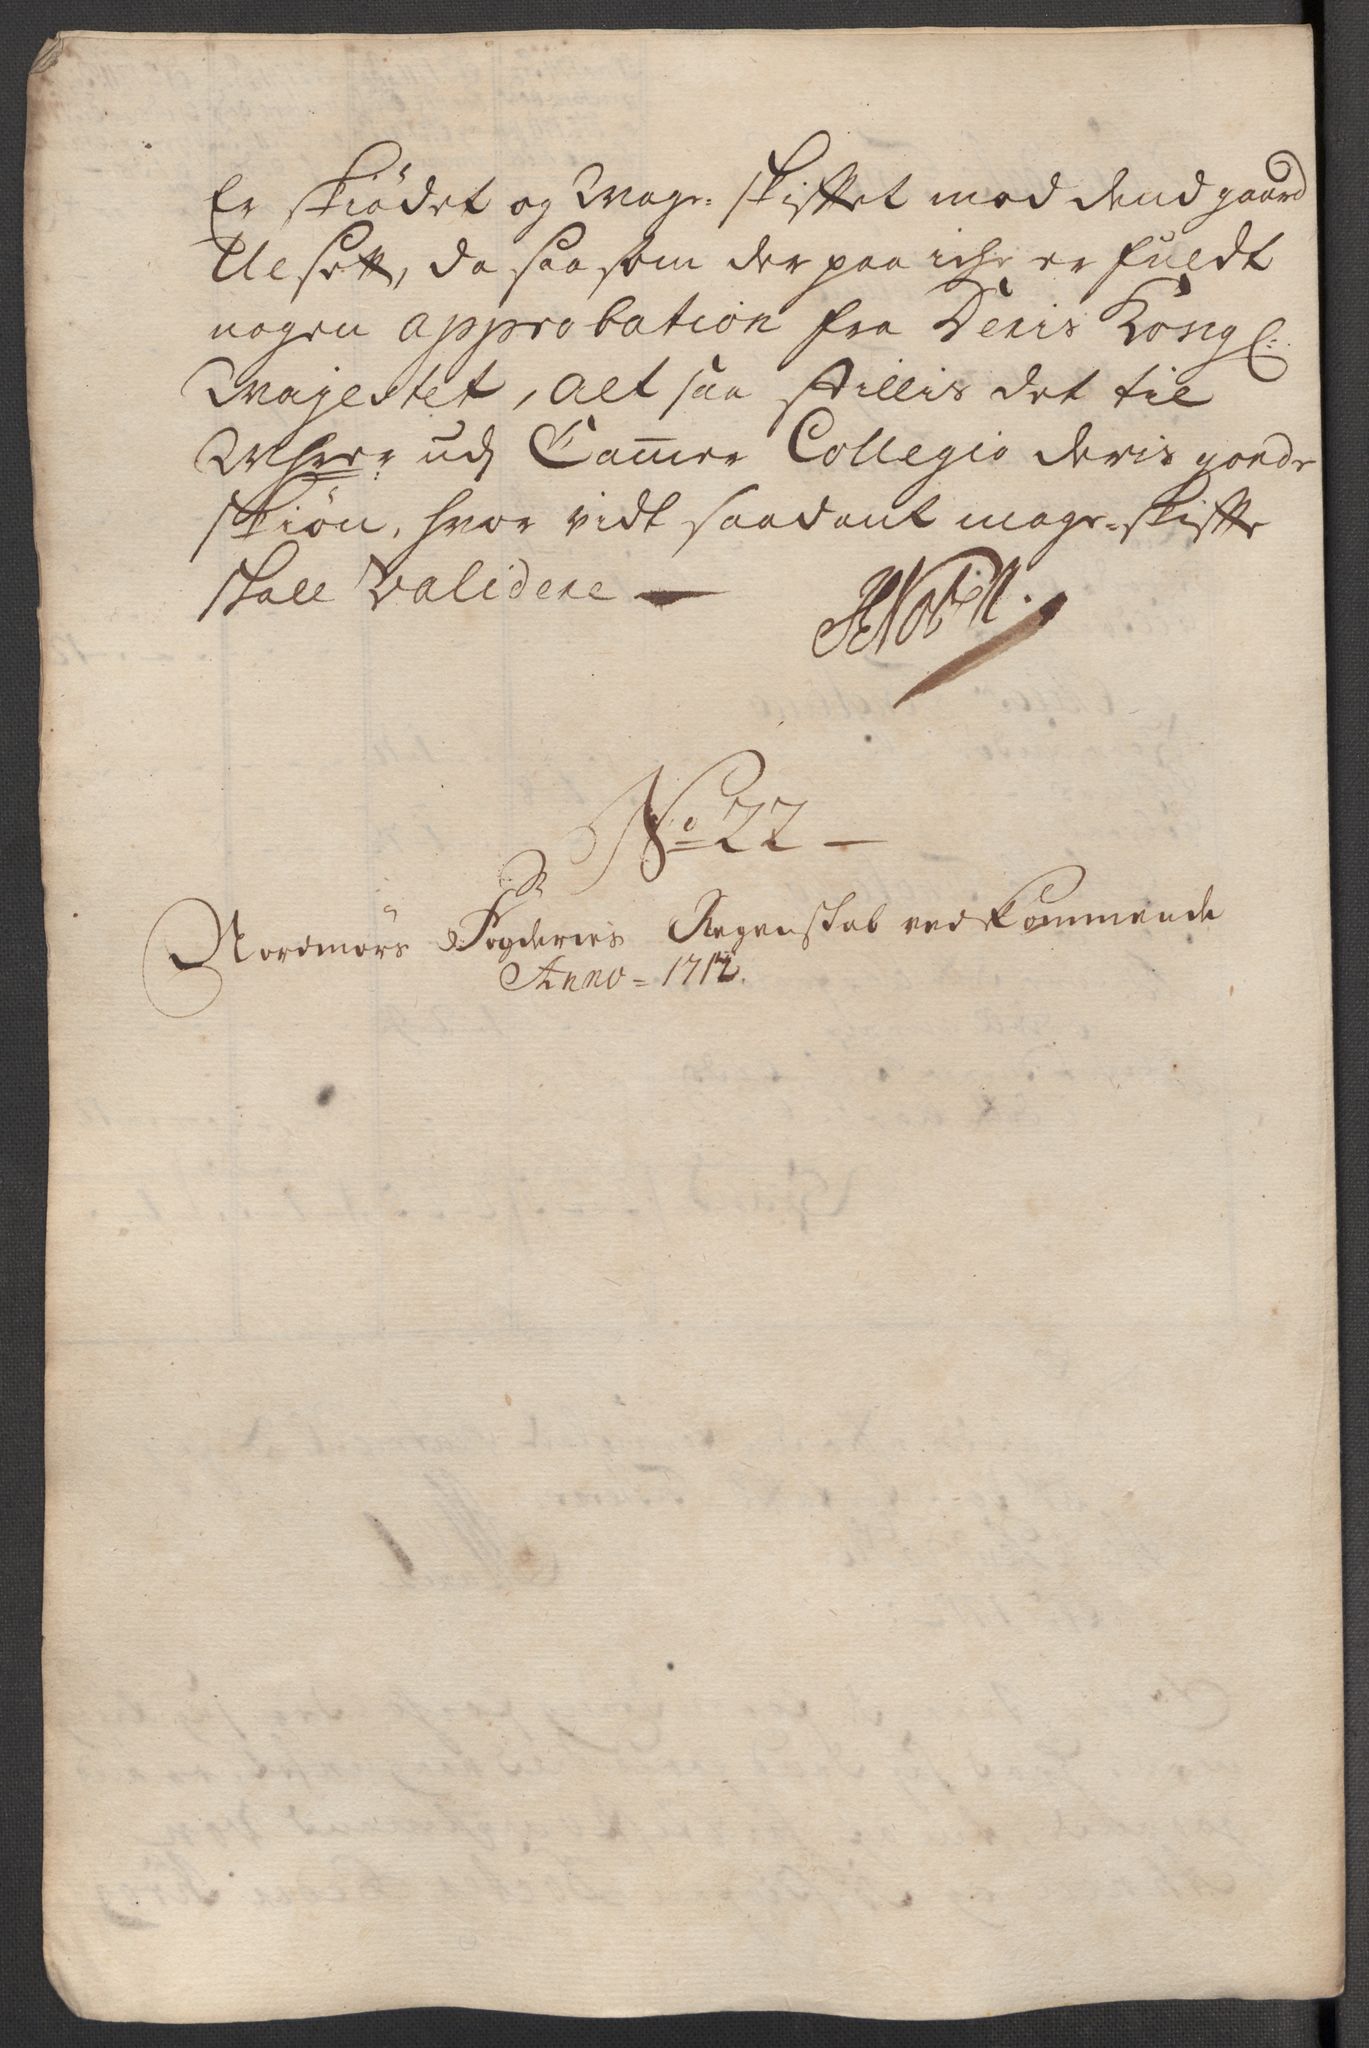 Er skiödet og Mage- skifftet mod dend gaard
Ulset, da saa som der paa iche er fuldt
nogen approbation fra Deris Kongl:
Majestet, alt saa stillis det til
Welb: Herrer udj Cammer Collegio deris goede
skiön, hvor vidt saadant mage-skiffte
skall validere —
No 22 —
Nordmørs Fogderies Regenskab vedkommende
Anno = 1712.